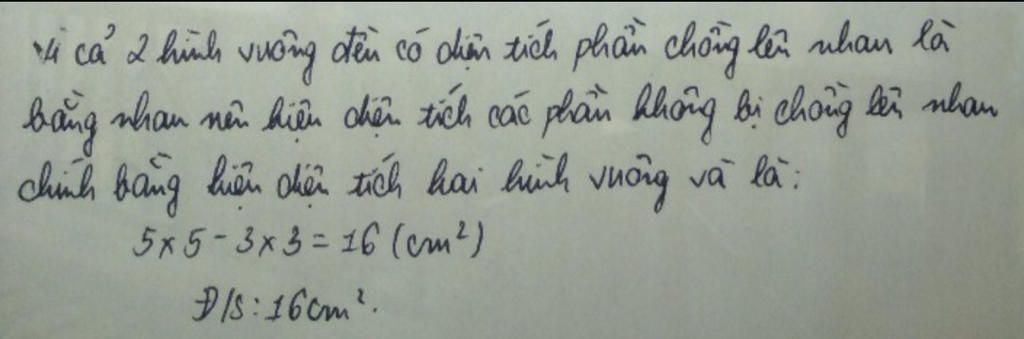 Vì cả 2 hình vuông đều có diện tích phần chồng lên nhau là
bằng nhau nên hiệu diện tích các phần không bị chồng lên nhau
chính bằng hiệu diện tích hai hình vuông và là:
5 x 5 - 3 x 3 = 16 (cm²)
Đ/S: 16cm².